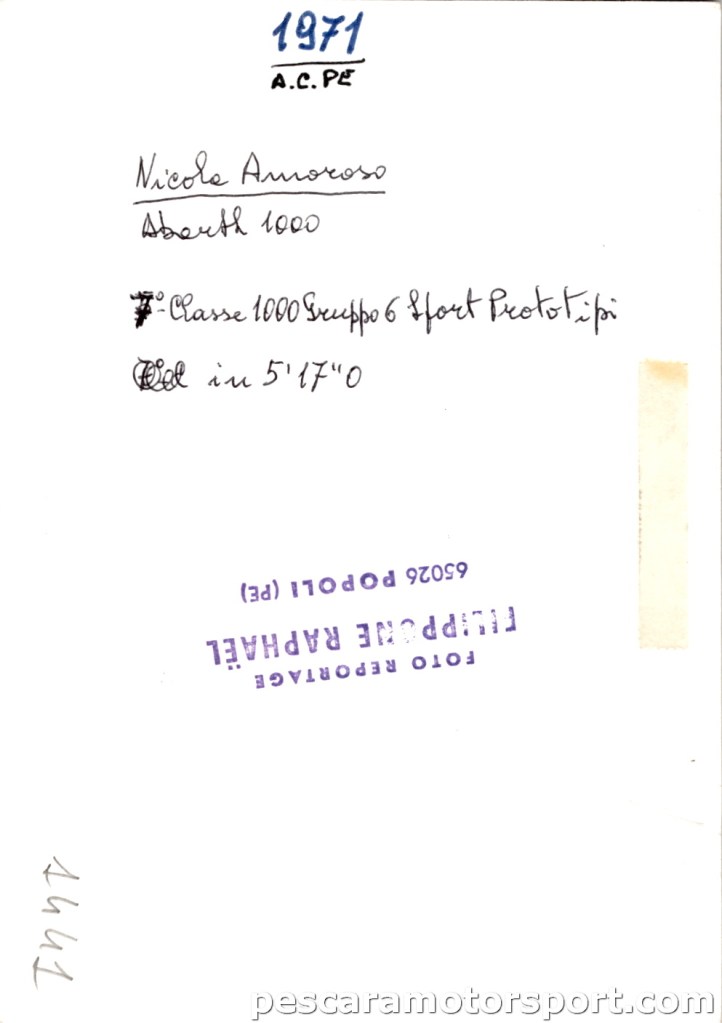 1971
A.C.PE
Nicola Amoroso
Abarth 1000
7°- Classe 1000 Gruppo 6 Sport Prototipi
in 5'17"0
FOTO REPORTAGE
FILIPPONE RAPHAËL
65026 POPOLI (PE)
1441
pescaramotorsport.com